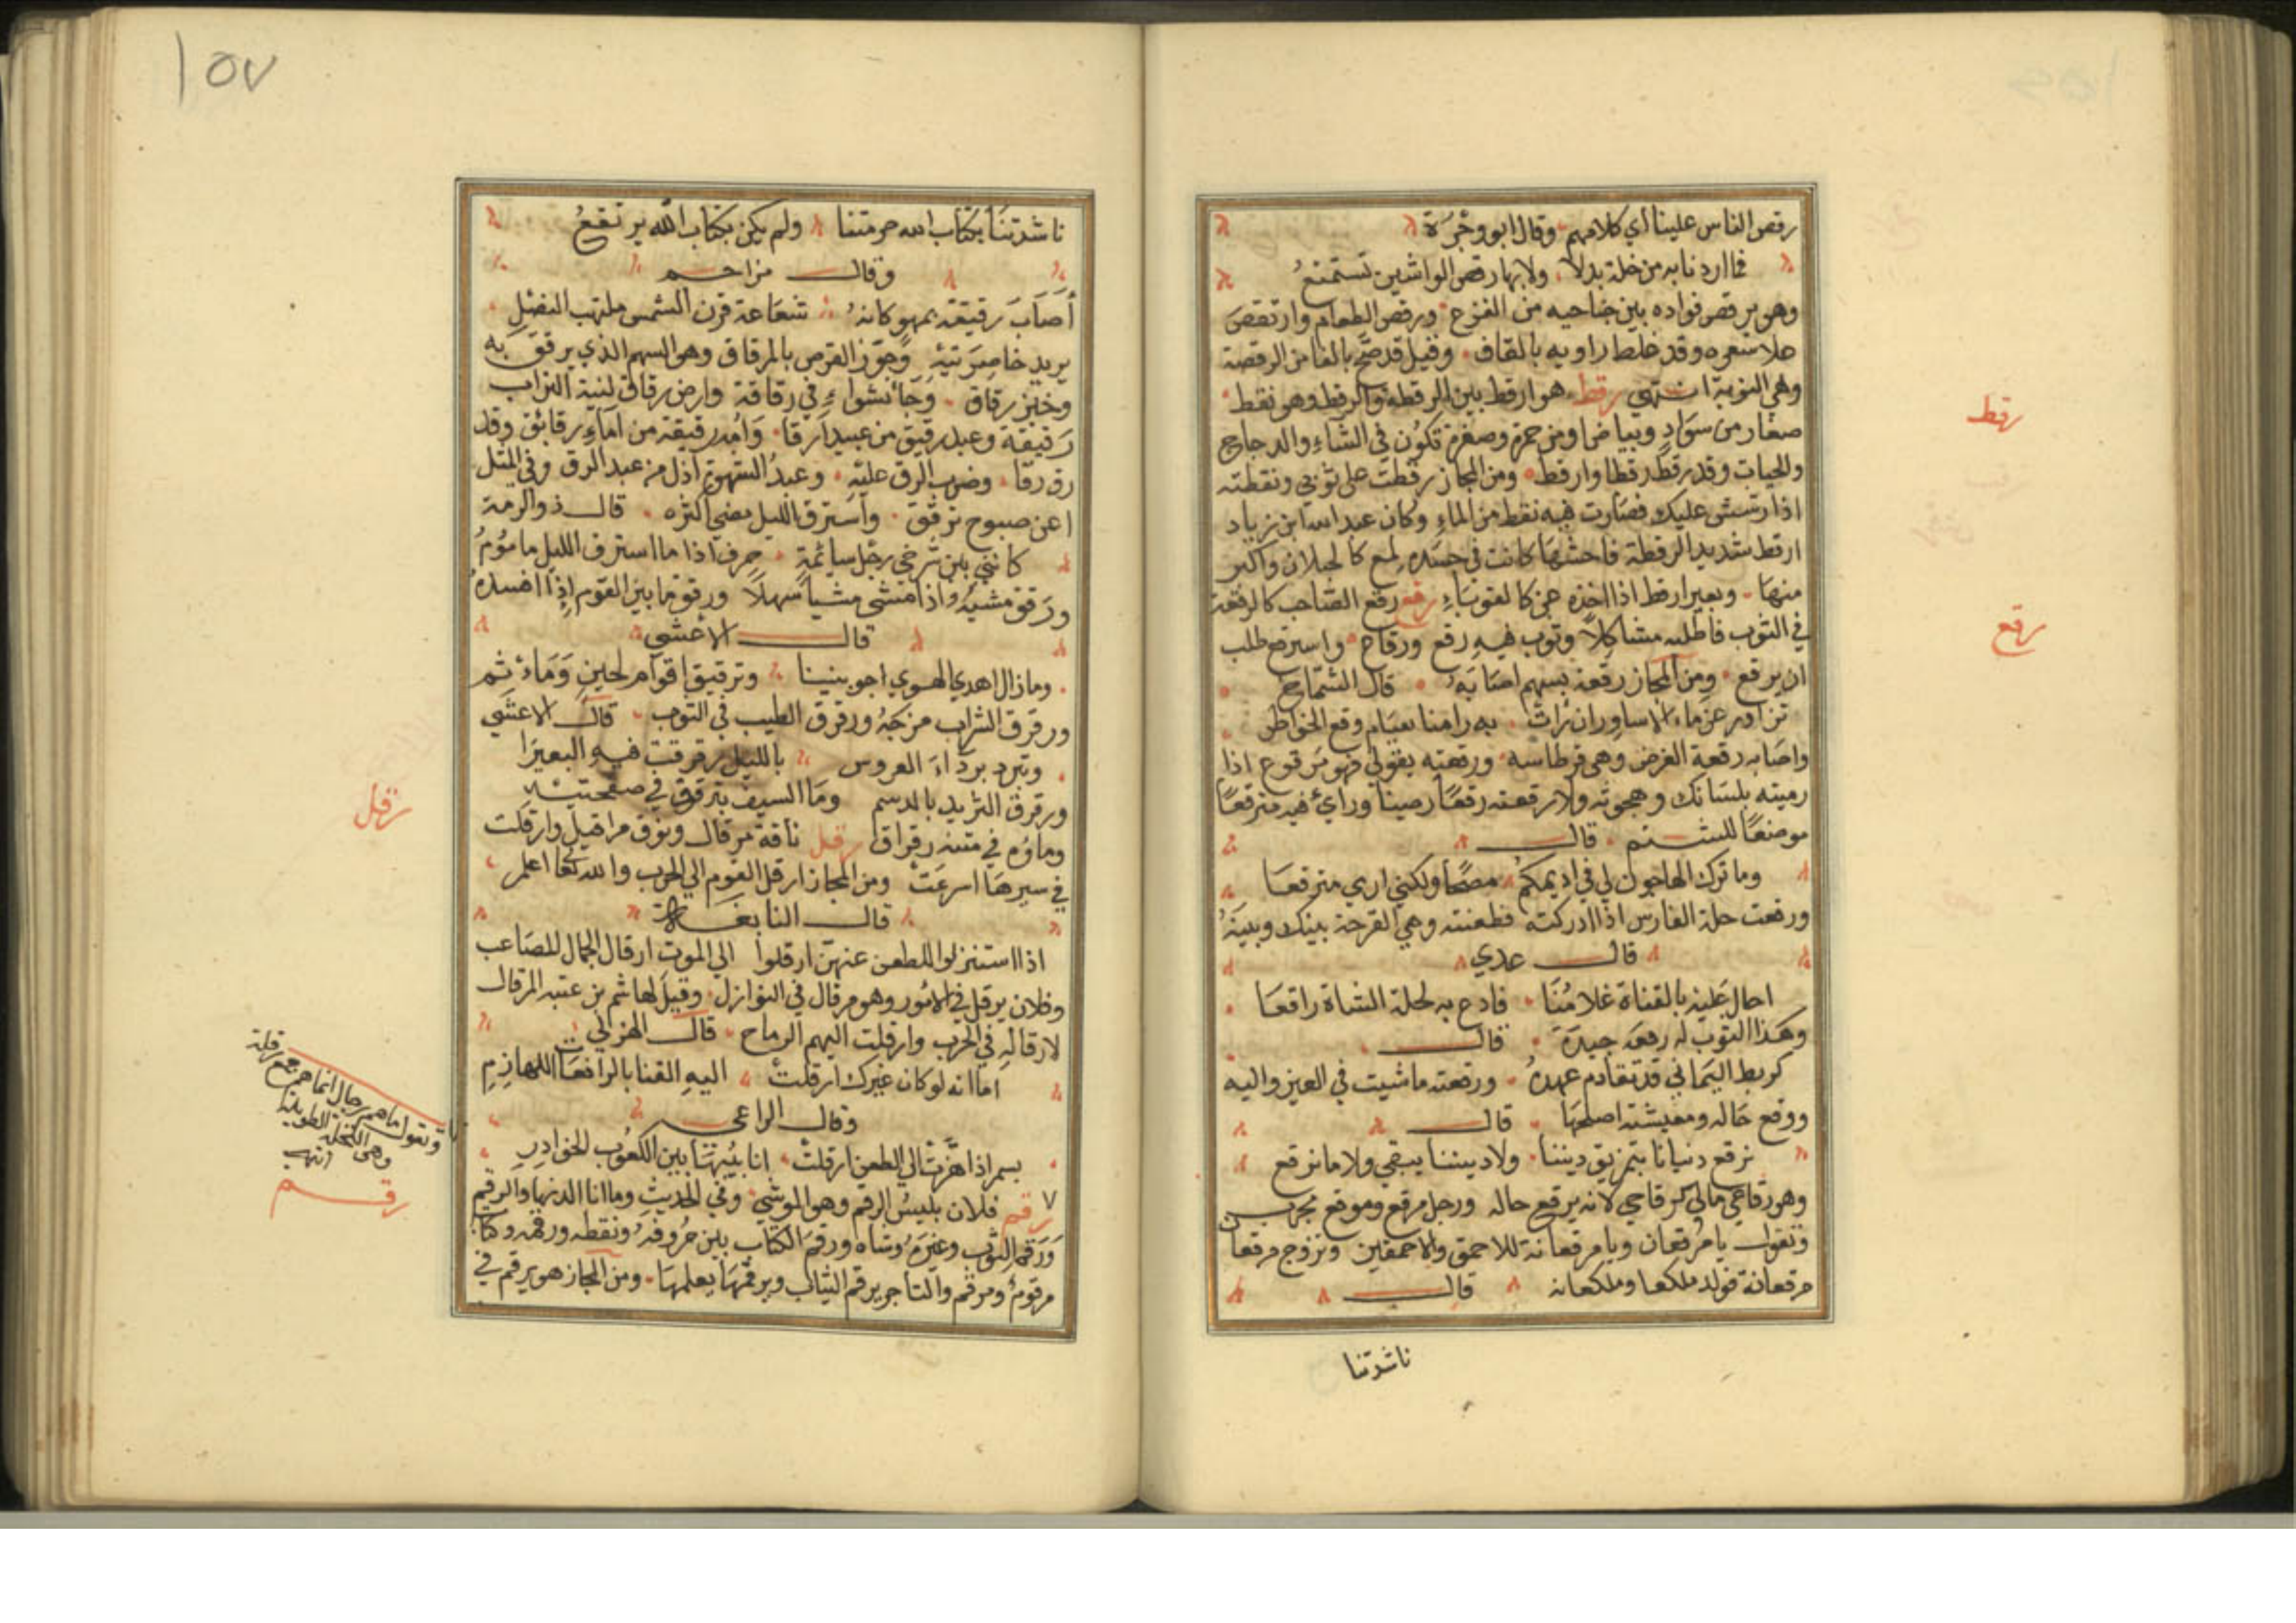 رقص الناس علينا اي كلامهم وقال ابو وجزة
فما اردنا به من خلة بدلا ولا بها رقص الواشين نستمنع
وهو يرقص فواده بين جناحيه من الفزع ورقص الطعام وارتقص
علا سعره وقد غلط راويه بالقاف وقيل قد صح بالفا من الرفصة
وهي النوبة انتهى رقط هو ارقط بين الرقطة والرقط وهو نقط
صغار من سواد وبياض او من حمرة وصفرة تكون في الشاء والدجاج
والحيات وقد رقط رقطا وارقط ومن المجاز رقطت على ثوبي ونقطته
اذا رششى عليك فصارت فيه نقط من الماء وكان عبد الله ابن زياد
ارقط شديد الرقطة فاحشها كانت في جسده لمع كالخيلان واكبر
منها وبعير ارقط اذا اخذه عر كالقوباء رقع رقع الصاحب كالرقعة
في الثوب فاطلبه مشاكلا وثوب فيه رقع ورقاع واسترقع طلب
ان يرقع ومن المجاز رقعه بسهم اصابه قال الشماخ
تزاور عن ماء الاساور ان رات به رامنا يعتام رقع الخواطر
واصابه رقعة الغرض وهي قرطاسه ورقعته بقولي فهو مرقوع اذا
رميته بلسانك وهجوته ولارقعنه رقعا رصينا وراي فيه مترقعا
موضعا للشتم قال
وما ترك الهاجون لي في اديمكم مصحا ولكني ارى مترقعا
ورقعت خلة الفارس اذا ادركته فطعنته وهي الفرجة بينك وبينه
قال عدي
احال عليه بالقناة غلامنا فاذع به لخلة الشاة راقعا
وهذا الثوب له رقعة جيدة قال
كريط اليماني قد تقادم عهده ورقعته ما شيت في العين واليد
ورقع حاله ومعيشته اصلحها قال
نرقع دنيانا بتمزيق ديننا ولا ديننا يبقى ولا ما نرقع
وهو رقاعي مالي كرقاحي لانه يرقع حاله ورجل مرقع وموقع مجرب
وتقول يا مرقعان ويا مرقعانة للاحمق والاحمقين وتزوج مرقعان
مرقعانة فولد ملكعا وملكعانه قال
ناشدتنا
رقط
رقع
١٥٧
ناشدتنا بكتاب الله حرمتنا ولم يكن بكتاب الله يرتقع
وقال مزاحم
اصاب رقيقته بمهو كانه شعاعة قرن الشمس ملتهب النصل
يريد خاصرتيه وحوز القرص بالمرقاق وهو السهم الذي يرقق به
وخبز رقاق وجا بشواء في رقاقة وارض رقاق لينة التراب
رقيقة وعبد رقيق من عبيد ارقا وامة رقيقة من اماء رقائق وقد
رق رقا وضرب الرق عليه وعبد الشهوة اذل من عبد الرق وفي المثل
اعن صبوح ترقق واسترق الليل مضى اكثره قال ذو الرمة
كانني بين شرخي رحل ساهمة حرف اذا ما استرق الليل ماموم
ورقق مشيه واذا مشى مشيا سهلا ورقق ما بين القوم اذا افسده
قال الاعشى
وما زال اهدي الهوى اجر بيننا وترقيق اقوام لحين وماثم
ورقرق الشراب مزجه ورقرق الطيب في الثوب قال الاعشى
وتبرد برد رداء العروس بالليل رقرقت فيه العبيرا
ورقرق الثريد بالدسم وما السيف يترقرق في صفحتيه
وماوه في متنه رقراق رقل ناقة مرقال ونوق مراقيل وارقلت
في سيرها اسرعت ومن المجاز ارقل القوم الى الحرب والله تعا اعلم
قال النابغة
اذا استنزلوا للطعن عنهن ارقلوا الى الموت ارقال الجمال المصاعب
وفلان يرقل في الامور وهو مرقال في النوازل وقيل لهاشم بن عتبة المرقال
لارقاله في الحرب وارقلت اليهم الرماح قال الهذلي
اما انه لو كان غيرك ارقلت اليه القنا بالراعفات اللهاذم
وقال الراعي
بسمر اذا هزت الى الطعن ارقلت انابيبها بين الكعوب الحوادر
رقم فلان يلبس الرقم وهو الموشى وفي الحديث وما انا الدنيا والرقم
ورقم الثوب وغيره وشاه ورقم الكتاب بين حروفه ونقطه ورقمه وكتاب
مرقوم ومرقم والتاجر يرقم الثياب ويرقمها يعلمها ومن المجاز هو يرقم في
رقل
وتقول ما هم رجال انما هم جمع رقلة
وهي النخلة الطويلة
انتهى
رقم